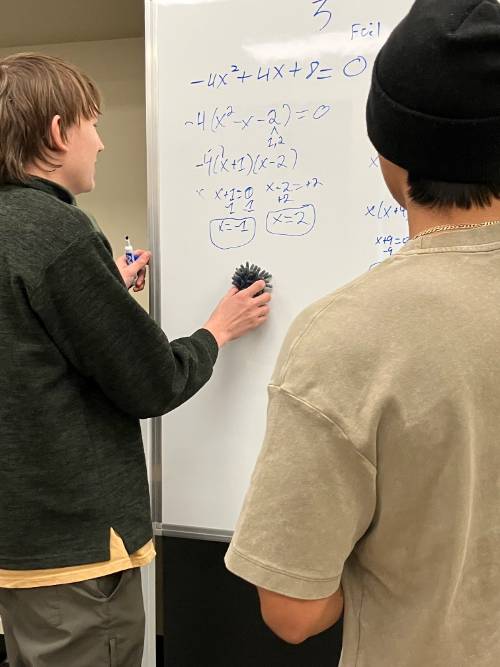 3
Foil
-4x²+4x+8=0
-4(x²-x-2)=0
1,2
-4(x+1)(x-2)
x+1=0 x-2=+2
-1 -1 +2
x=-1 x=2
x(x+4
x+9=0
-9